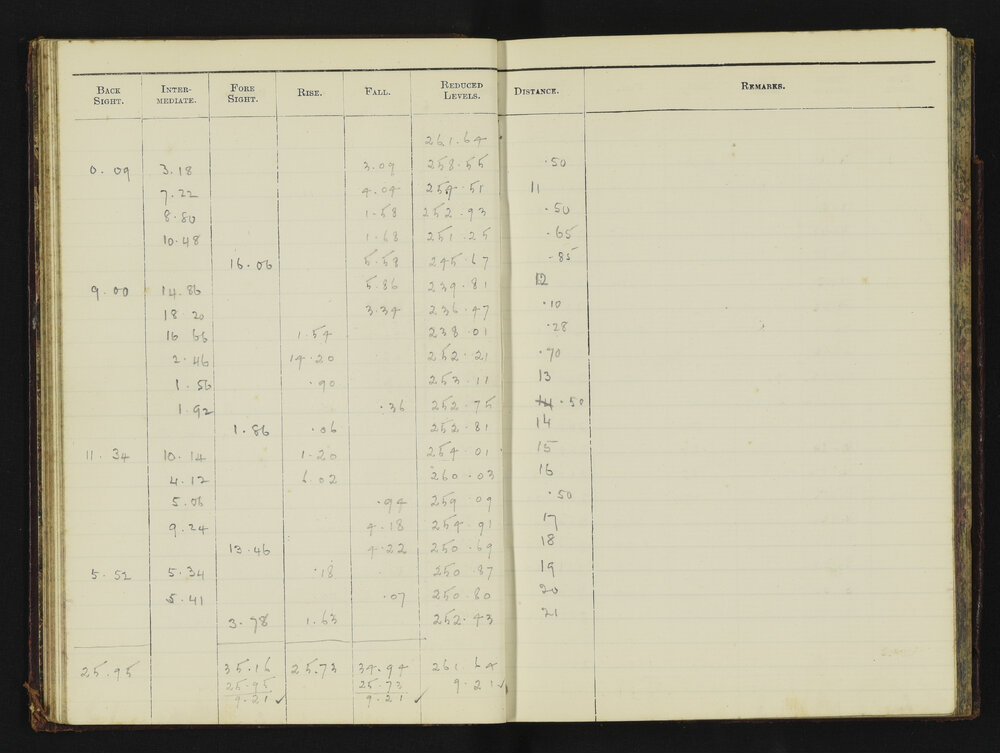 BACK SIGHT. INTER-MEDIATE. FORE SIGHT. RISE. FALL. REDUCED LEVELS. DISTANCE. REMARKS.
261.64
0.09 3.18 3.09 258.55 .50
7.22 4.04 254.51 11
8.80 1.58 252.93 .50
10.48 1.68 251.25 .65
16.06 5.58 245.67 .85
9.00 14.86 5.86 239.81 12
18.20 3.34 236.47 .10
16.66 1.54 238.01 .28
2.46 14.20 252.21 .70
1.56 .90 253.11 13
1.92 .36 252.75 14 .50
1.86 .06 252.81 14
11.34 10.14 1.20 254.01 15
4.12 6.02 260.03 16
5.06 .94 259.09 .50
9.24 4.18 254.91 17
13.46 4.22 250.69 18
5.52 5.34 .18 250.87 19
5.41 .07 250.80 20
3.78 1.63 252.43 21
25.95 35.16 25.73 34.94 261.64
25.95 25.73 9.21 ✓
9.21 ✓ 9.21 ✓